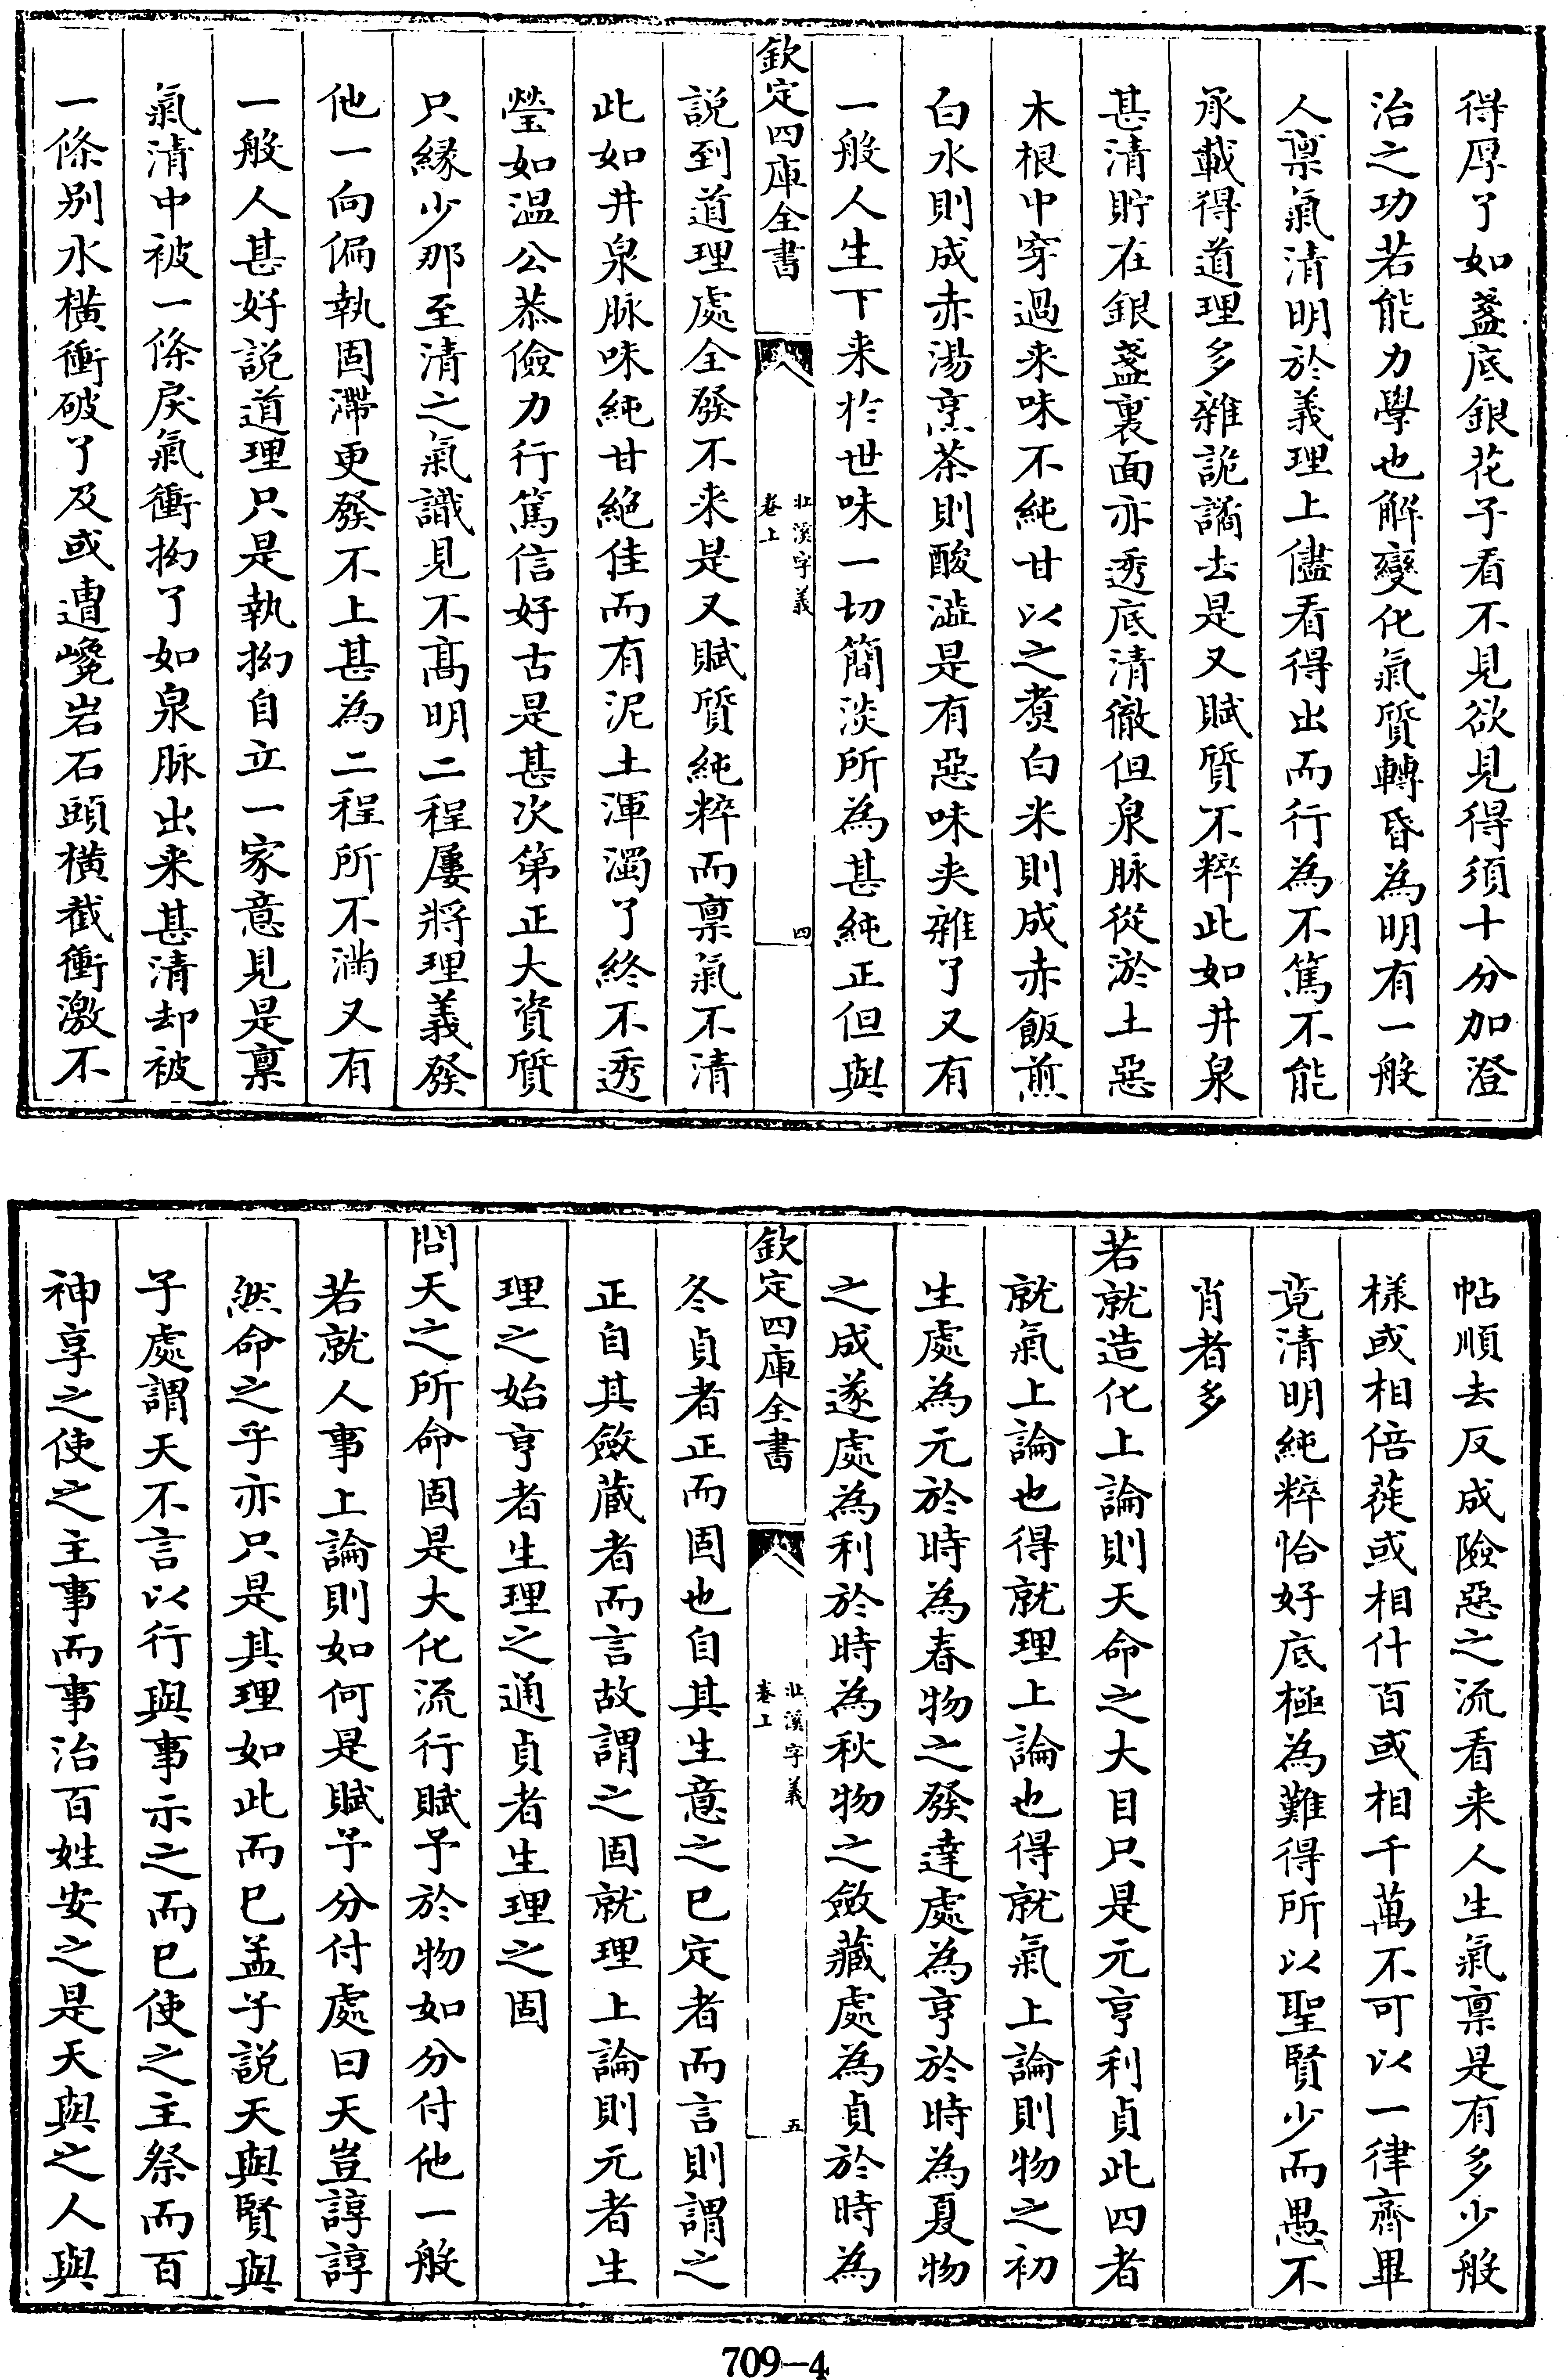 得厚了如盞底銀花子看不見欲見得須十分加澄
治之功若能力學也解變化氣質轉昏為明有一般
人禀氣清明於義理上儘看得出而行為不篤不能
承載得道理多雜詭譎去是又賦質不粹此如井泉
甚清貯在銀盞裏面亦透底清徹但泉脉從淤土惡
木根中穿過来味不純甘以之煑白米則成赤飯煎
白水則成赤湯烹茶則酸澁是有惡味夾雜了又有
一般人生下来於世味一切簡淡所為甚純正但與
欽定四庫全書
北溪字義
卷上
四
説到道理處全發不来是又賦質純粹而禀氣不清
此如井泉脉味純甘絶佳而有泥土渾濁了終不透
瑩如温公恭儉力行篤信好古是甚次第正大資質
只緣少那至清之氣識見不髙明二程屢將理義發
他一向偏執固滯更發不上甚為二程所不滿又有
一般人甚好說道理只是執拗自立一家意見是禀
氣清中被一條戾氣衝拗了如泉脉出来甚清却被
一條别水橫衝破了及或遭巉岩石頭橫截衝激不
帖順去反成險惡之流看来人生氣禀是有多少般
様或相倍蓰或相什百或相千萬不可以一律齊畢
竟清明純粹恰好底極為難得所以聖賢少而愚不
肖者多
若就造化上論則天命之大目只是元亨利貞此四者
就氣上論也得就理上論也得就氣上論則物之初
生處為元於時為春物之發達處為亨於時為夏物
之成遂處為利於時為秋物之斂藏處為貞於時為
欽定四庫全書
北溪字義
卷上
五
冬貞者正而固也自其生意之已定者而言則謂之
正自其斂蔵者而言故謂之固就理上論則元者生
理之始亨者生理之通貞者生理之固
問天之所命固是大化流行賦予於物如分付他一般
若就人事上論則如何是賦予分付處曰天豈諄諄
然命之乎亦只是其理如此而已孟子說天與賢與
子處謂天不言以行與事示之而已使之主祭而百
神享之使之主事而事治百姓安之是天與之人與
709-4